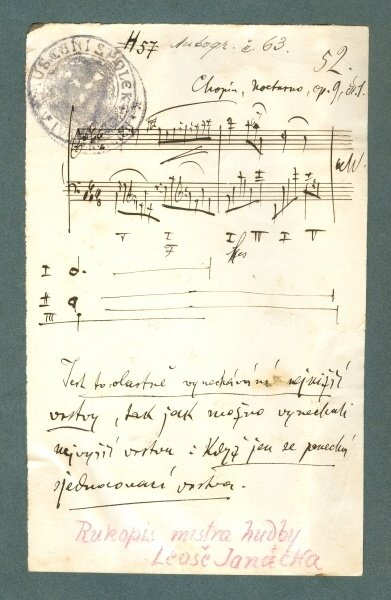 H57 Autogr. č. 63.
52.
Chopin, Nocturno, op. 9, č. 1.
V I I III I V
F
I
II
III
Jest to vlastně vynechávání nejnižší
vrstvy, tak jak možno vynechati
nejvyšší vrstvu : když jen se ponechá
sjednocovací vrstva.
Rukopis mistra hudby
Leoše Janáčka